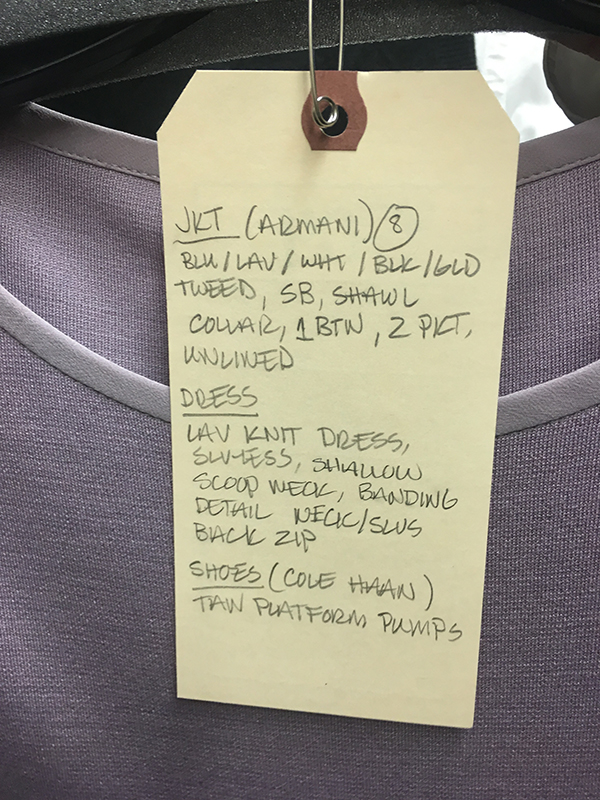 JKT (ARMANI) 8
BLU/LAV/WHT/BLK/GLD
TWEED, SB, SHAWL
COLLAR, 1 BTN, 2 PKT,
UNLINED
DRESS
LAV KNIT DRESS,
SLV-LESS, SHALLOW
SCOOP NECK, BANDING
DETAIL NECK/SLVS
BACK ZIP
SHOES (COLE HAAN)
TAN PLATFORM PUMPS